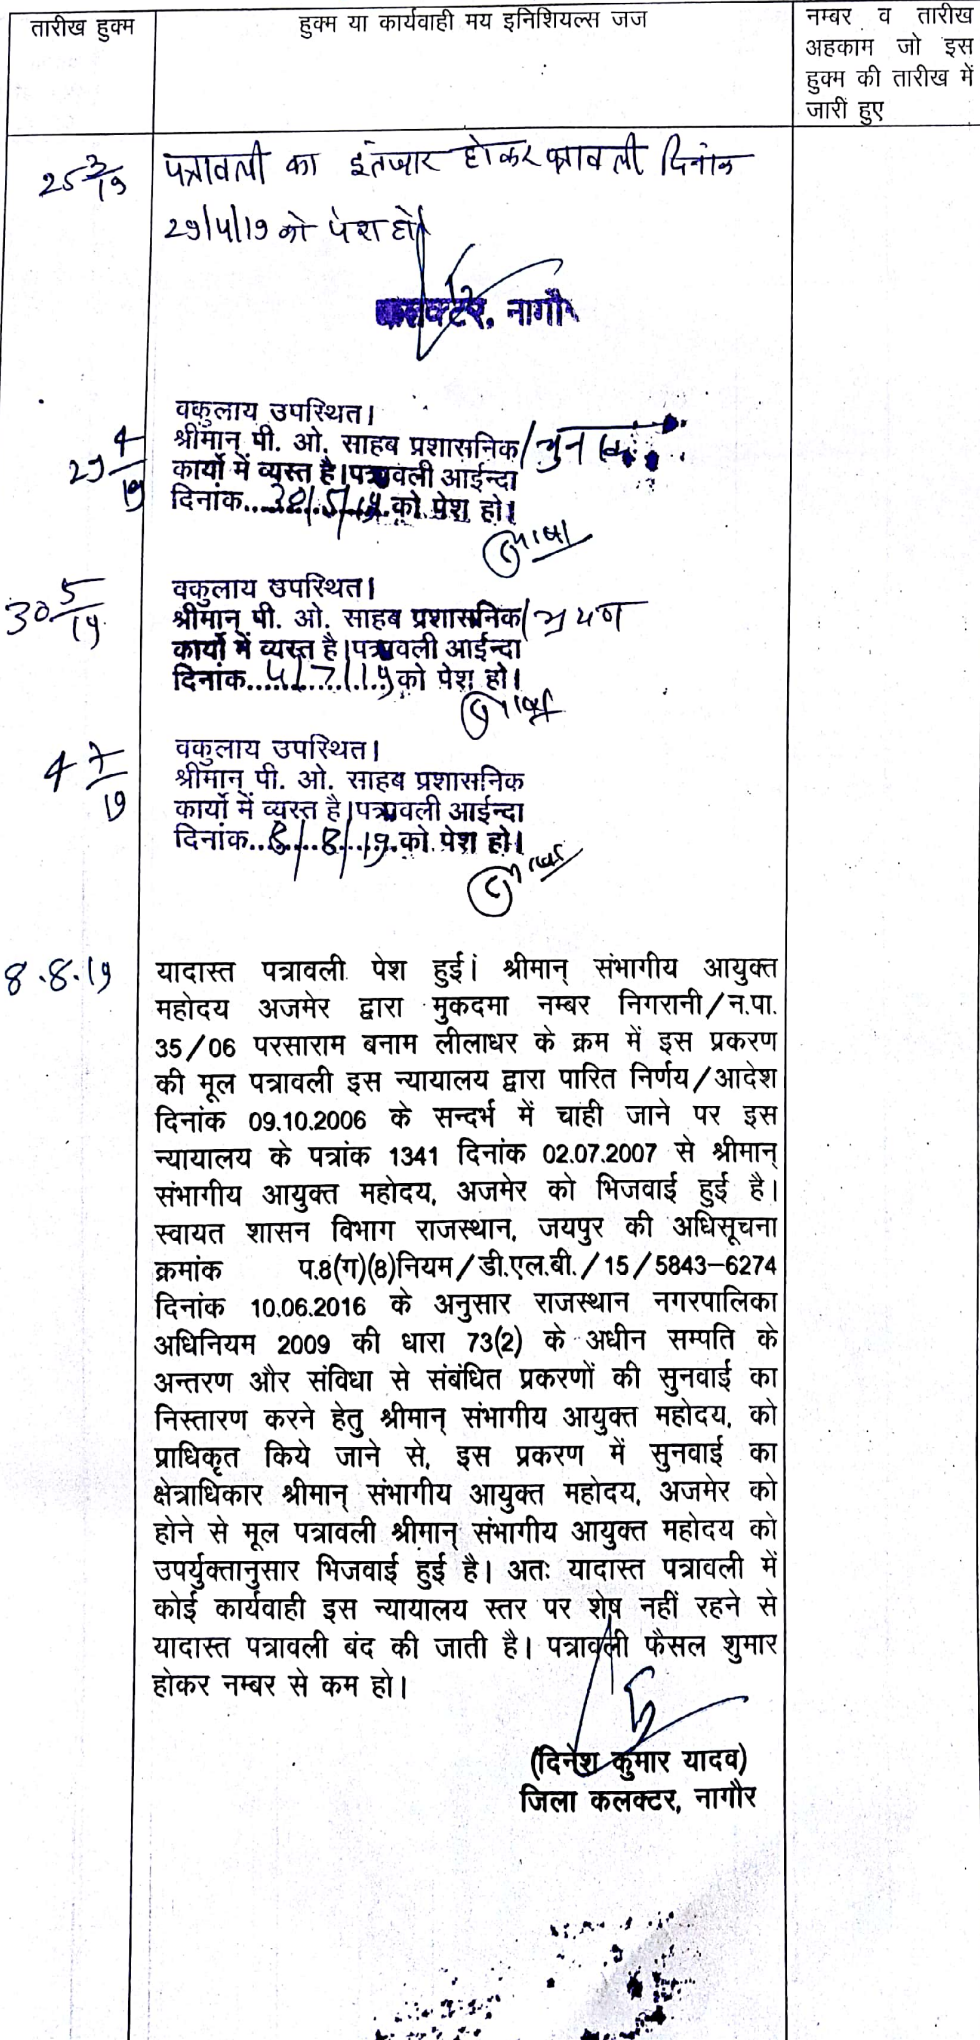 तारीख हुक्म
हुक्म या कार्यवाही मय इनिशियल्स जज
नम्बर व तारीख
अहकाम जो इस
हुक्म की तारीख में
जारी हुए
25 3/19
पत्रावली का इंतजार होकर पत्रावली दिनांक
29/4/19 को पेश हो।
कलक्टर, नागौर
29 4/19
वकुलाय उपस्थित।
श्रीमान् पी. ओ. साहब प्रशासनिक/
कार्यो में व्यस्त है।पत्रावली आईन्दा
दिनांक...30/5/19...को पेश हो।
30 5/19
वकुलाय उपस्थित।
श्रीमान् पी. ओ. साहब प्रशासनिक/भ्रमण
कार्यो में व्यस्त है।पत्रावली आईन्दा
दिनांक...4/7/19...को पेश हो।
4 7/19
वकुलाय उपस्थित।
श्रीमान् पी. ओ. साहब प्रशासनिक
कार्यो में व्यस्त है।पत्रावली आईन्दा
दिनांक...8/8/19...को पेश हो।
8.8.19
यादास्त पत्रावली पेश हुई। श्रीमान् संभागीय आयुक्त
महोदय अजमेर द्वारा मुकदमा नम्बर निगरानी/न.पा.
35/06 परसाराम बनाम लीलाधर के क्रम में इस प्रकरण
की मूल पत्रावली इस न्यायालय द्वारा पारित निर्णय/आदेश
दिनांक 09.10.2006 के सन्दर्भ में चाही जाने पर इस
न्यायालय के पत्रांक 1341 दिनांक 02.07.2007 से श्रीमान्
संभागीय आयुक्त महोदय, अजमेर को भिजवाई हुई है।
स्वायत शासन विभाग राजस्थान, जयपुर की अधिसूचना
क्रमांक प.8(ग)(8)नियम/डी.एल.बी./15/5843-6274
दिनांक 10.06.2016 के अनुसार राजस्थान नगरपालिका
अधिनियम 2009 की धारा 73(2) के अधीन सम्पति के
अन्तरण और संविधा से संबंधित प्रकरणों की सुनवाई का
निस्तारण करने हेतु श्रीमान् संभागीय आयुक्त महोदय, को
प्राधिकृत किये जाने से, इस प्रकरण में सुनवाई का
क्षेत्राधिकार श्रीमान् संभागीय आयुक्त महोदय, अजमेर को
होने से मूल पत्रावली श्रीमान् संभागीय आयुक्त महोदय को
उपर्युक्तानुसार भिजवाई हुई है। अतः यादास्त पत्रावली में
कोई कार्यवाही इस न्यायालय स्तर पर शेष नहीं रहने से
यादास्त पत्रावली बंद की जाती है। पत्रावली फैसल शुमार
होकर नम्बर से कम हो।
(दिनेश कुमार यादव)
जिला कलक्टर, नागौर